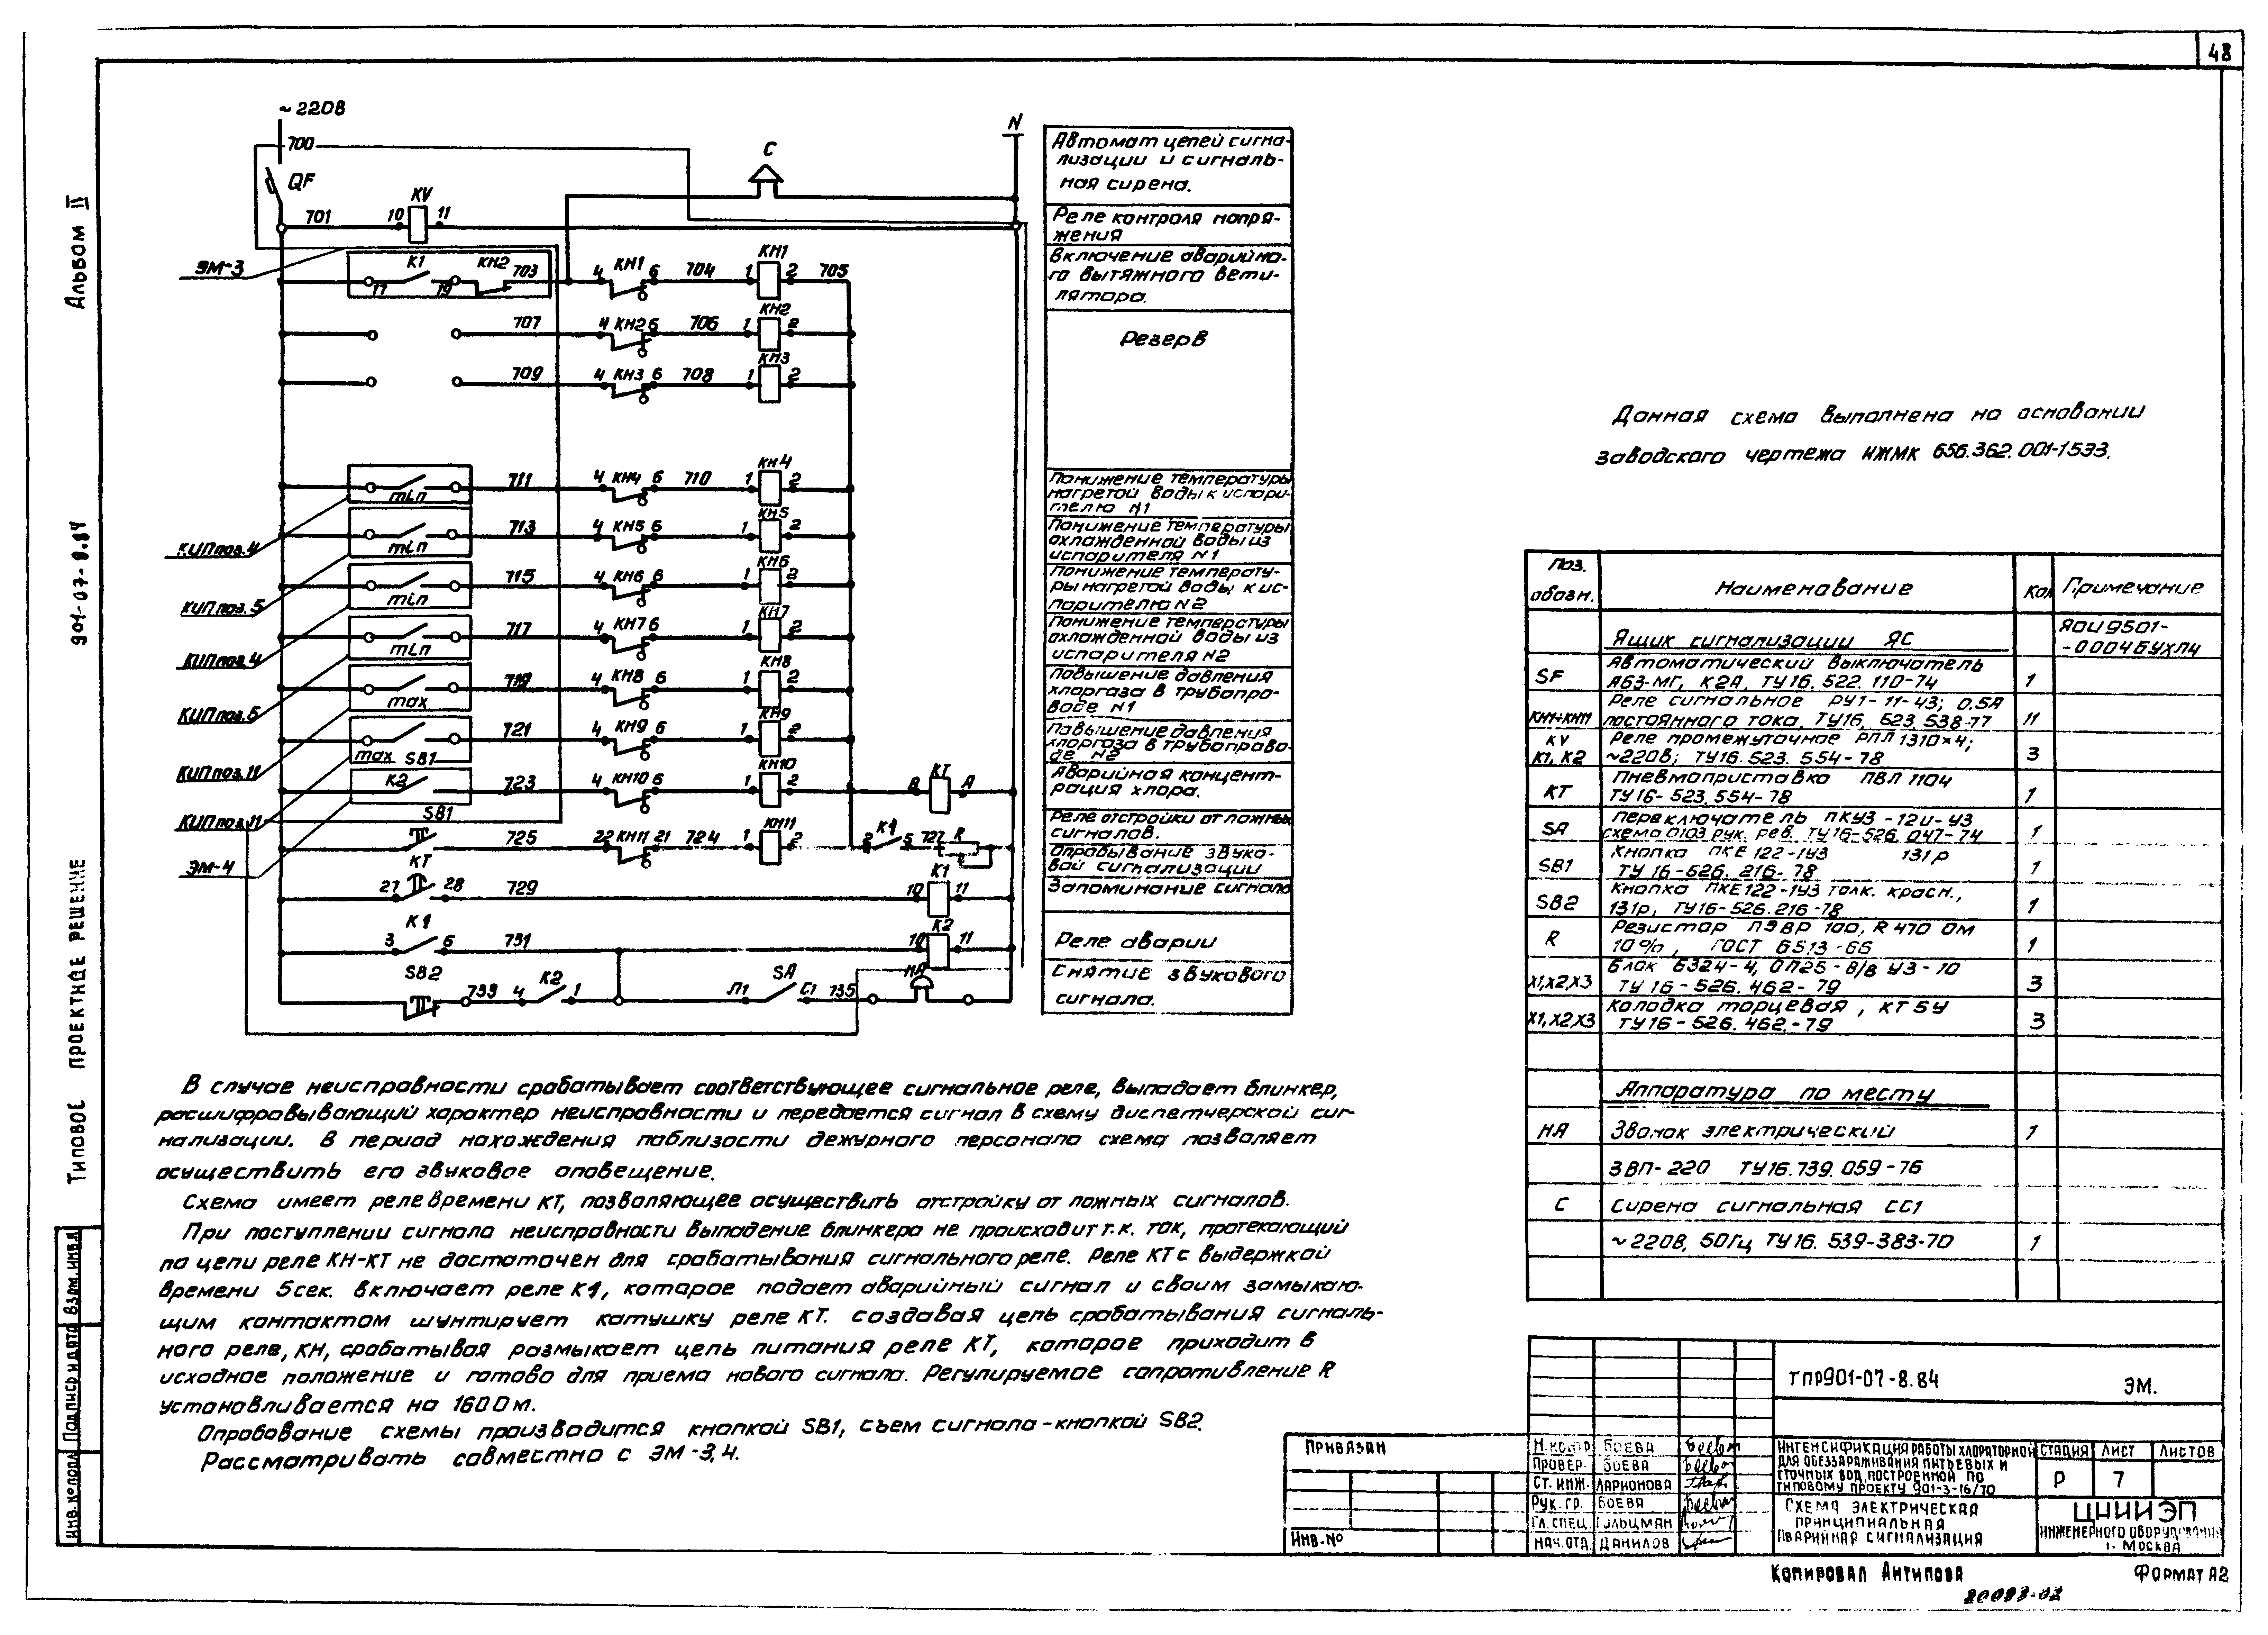 48
Альбом II
901-07-8.84
Типовое проектное решение
Взам. инв.
Подпись и дата
Инв. № подл
~220В
700
QF
701
10
KV
11
С
N
ЭМ-3
К1
17
19
КН2
703
4
КН1
6
704
1
КН1
2
705
707
4
КН2
6
706
1
КН2
2
709
4
КН3
6
708
1
КН3
2
min
711
4
КН4
6
710
1
КН4
2
КИП поз. 4
min
713
4
КН5
6
1
КН5
2
КИП поз. 5
min
715
4
КН6
6
1
КН6
2
КИП поз. 4
min
717
4
КН7
6
1
КН7
2
КИП поз. 5
max
719
4
КН8
6
1
КН8
2
КИП поз. 11
max
SB1
721
4
КН9
6
1
КН9
2
КИП поз. 11
К2
723
4
КН10
6
1
КН10
2
В
КТ
А
ЭМ-4
SB1
725
22
КН11
21
724
1
КН11
2
2
К1
5
727
R
КТ
27
28
729
10
К1
11
К1
3
6
731
10
К2
11
SB2
733
4
К2
1
Л1
SA
С1
735
НА
Автомат цепей сигна-
лизации и сигналь-
ная сирена.
Реле контроля напря-
жения
Включение аварийно-
го вытяжного вети-
лятора.
Резерв
Понижение температуры
нагретой воды к испари-
телю N1
Понижение температуры
охлажденной воды из
испарителя N1
Понижение температу-
ры нагретой воды к ис-
парителю N2
Понижение температуры
охлажденной воды из
испарителя N2
Повышение давления
хлоргаза в трубопро-
воде N1
Повышение давления
хлоргаза в трубопрово-
де N2
Аварийная концент-
рация хлора.
Реле отстройки от ложных
сигналов.
Опробывание звуко-
вой сигнализации
Запоминание сигнала
Реле аварии
Снятие звукового
сигнала.
Данная схема выполнена на основании
заводского чертежа ИЖМК 656.362.001-1533.
Поз.
обозн.
Наименование
Кол
Примечание
Ящик сигнализации ЯС
ЯОИ9501-
-0004БУХЛ4
SF
Автоматический выключатель
А63-МГ, К2А, ТУ16.522.110-74
1
КН1÷КН11
Реле сигнальное РУ1-11-43; 0.5А
постоянного тока, ТУ16.523.538-77
11
KV
К1, К2
Реле промежуточное РПЛ 1310×4;
~220В; ТУ16.523.554-78
3
КТ
Пневмоприставка ПВЛ 1104
ТУ16-523.554-78
1
SA
Переключатель ПКУЗ-12И-УЗ
схема 0103 рук. рев. ТУ16-526.047-74
1
SB1
Кнопка ПКЕ 122-1У3 131р
ТУ16-526.216-78
1
SB2
Кнопка ПКЕ122-1У3 толк. красн.,
131р, ТУ16-526.216-78
1
R
Резистор ПЭВР 100, R 470 Ом
10%, ГОСТ 6513-66
1
Х1,Х2,Х3
Блок Б324-4, 0П25-8/8 У3-10
ТУ16-526.462-79
3
Х1,Х2,Х3
Колодка торцевая, КТ5У
ТУ16-526.462.-79
3
Аппаратура по месту
НА
Звонок электрический
1
ЗВП-220 ТУ16.739.059-76
С
Сирена сигнальная СС1
~220В, 50Гц ТУ16.539-383-70
1
В случае неисправности срабатывает соответствующее сигнальное реле, выпадает блинкер,
расшифровывающий характер неисправности и передается сигнал в схему диспетчерской сиг-
нализации. В период нахождения поблизости дежурного персонала схема позволяет
осуществить его звуковое оповещение.
Схема имеет реле времени КТ, позволяющее осуществить отстройку от ложных сигналов.
При поступлении сигнала неисправности выпадение блинкера не происходит т.к. ток, протекающий
по цепи реле КН-КТ не достаточен для срабатывания сигнального реле. Реле КТ с выдержкой
времени 5сек. включает реле К1, которое подает аварийный сигнал и своим замыкаю-
щим контактом шунтирует катушку реле КТ. создавая цепь срабатывания сигналь-
ного реле, КН, срабатывая размыкает цепь питания реле КТ, которое приходит в
исходное положение и готово для приема нового сигнала. Регулируемое сопротивление R
устанавливается на 160Ом.
Опробование схемы производится кнопкой SB1, съем сигнала-кнопкой SB2.
Рассматривать совместно с ЭМ-3,4.
Привязан
Инв.№
ТПР901-07-8.84
ЭМ.
Н.контр Боева
Провер. Боева
Ст. инж. Ларионова
Рук. гр. Боева
Гл. спец. Гольцман
Нач. отд. Данилов
Интенсификация работы хлораторной
для обеззараживания питьевых и
сточных вод, построенной по
типовому проекту 901-3-16/70
Стадия
Лист
Листов
Р
7
Схема электрическая
принципиальная
Аварийная сигнализация
ЦНИИЭП
инженерного оборудования
г. Москва
Копировал Антипова
Формат А2
20093-02